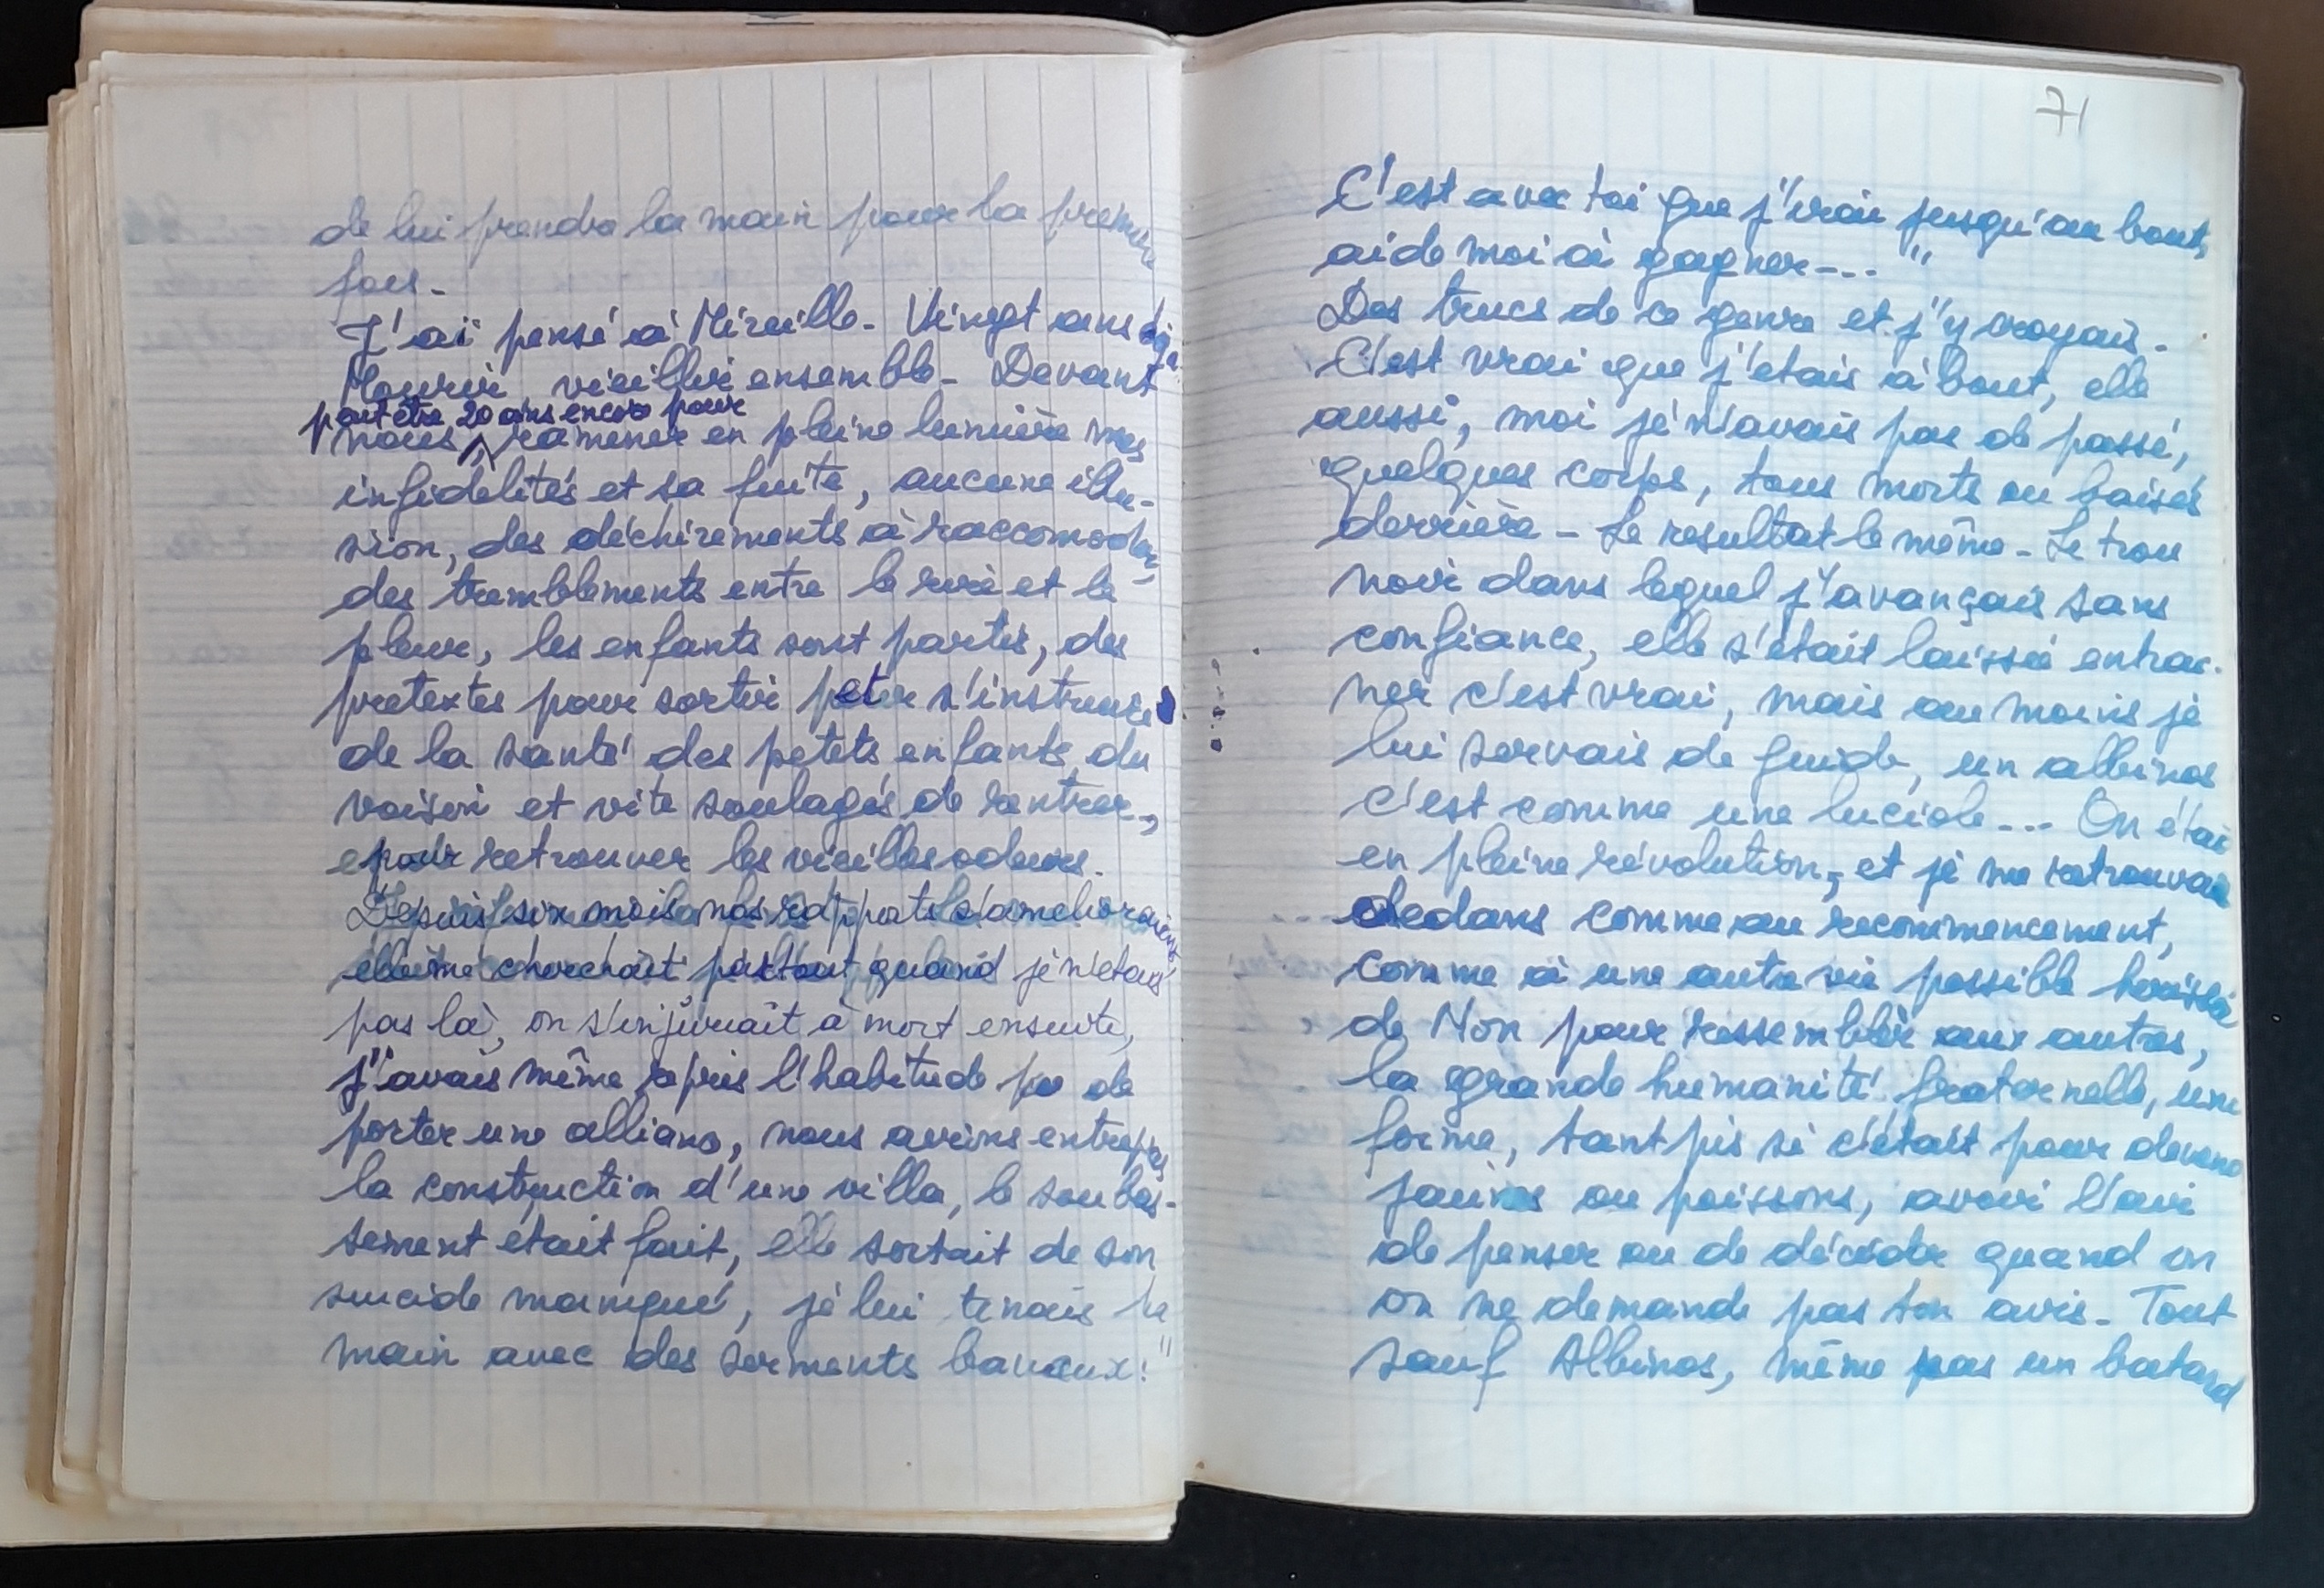 de lui prendre la main pour la première
fois.
J'ai pensé à Mireille. Vingt ans déjà.
Mourir vieillir ensemble. Devant
peut être 20 ans encore pour
nous, ramener en pleine lumière mes
infidélités et sa fuite, aucune illu-
sion, des déchirements à raccomoder,
des tremblements entre le rire et le
pleur, les enfants sont partis, des
pretextes pour sortir et s'instruire
de la santé des petits enfants du
voisin et vite soulagés de rentrer,
pour retrouver les vieilles odeurs.
Depuis six mois nos rapports s'amelioraient
elle me cherchait partout quand je n'étais
pas là, on s'injuriait à mort ensuite,
j'avais même pris l'habitude de
porter une alliance, nous avions entrepris
la construction d'une villa, le soubas-
sement était fait, elle sortait de son
suicide manqué, je lui tenais la
main avec des serments baveux: "
71
C'est avec toi que j'irai jusqu'au bout,
aide moi à gagner--- "
Des trucs de ce genre et j'y croyais.
C'est vrai que j'étais à bout, elle
aussi, moi je n'avais pas de passé,
quelques corps, tous morts ou baisés
derrière - Le resultat le même - Le trou
noir dans lequel j'avançais sans
confiance, elle s'était laissée entrai-
ner c'est vrai, mais au moins je
lui servais de guide, un albinos
c'est comme une luciole--- On était
en pleine révolution, et je me retrouvais
dedans comme au recommencement,
comme à une autre vie possible hérissée
de Non pour ressembler aux autres,
la grande humanité fraternelle, une
forme, tant pis si c'était pour devenir
jaunes ou poissons, avoir l'air
de penser ou de décider quand on
on ne demande pas ton avis. Tout
sauf Albinos, même pas un batard